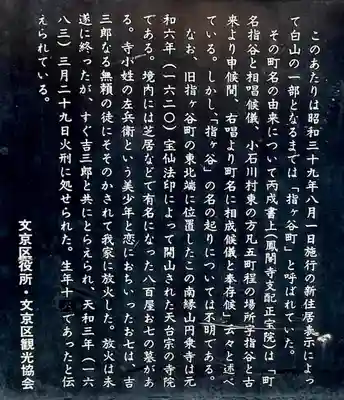 このあたりは昭和三十九年八月一日施行の新住居表示によっ
て白山の一部となるまでは「指ヶ谷町」と呼ばれていた。
その町名の由来について丙戌書上(鳳閣寺支配正宝院)は「町
名指谷と相唱候儀、小石川村東の方凡五町程の場所字指谷と古
来より申候間、右唱より町名に相成候儀と奉存候」云々と述べ
ている。しかし、「指ヶ谷」の名の起りについては不明である。
なお、旧指ヶ谷町の東北端に位置したこの南縁山円乗寺は元
和六年(一六二〇)宝仙法印によって開山された天台宗の寺院
である。境内には芝居などで有名になった八百屋お七の墓があ
る。寺小姓の左兵衛という美少年と恋におちいったお七は、吉
三郎なる無頼の徒にそそのかされて我家に放火した。放火は未
遂に終ったが、すぐ吉三郎と共にとらえられ、天和三年(一六
八三)三月二十九日火刑に処せられた。生年十八であったと伝
えられている。
文京区役所・文京区観光協会